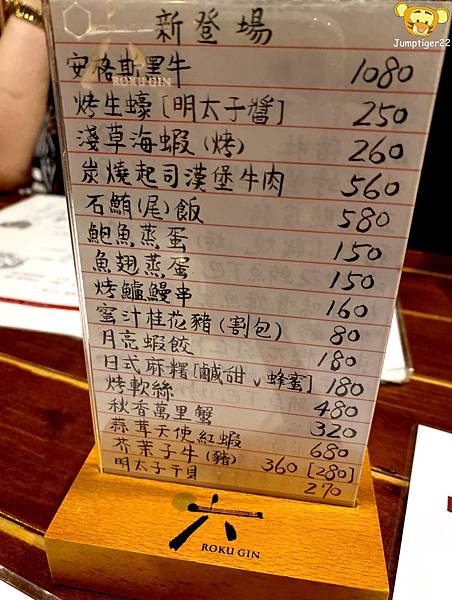 Jumptiger22
新登場
安格斯黑牛 1080
ROKU GIN
烤生蠔[明太子醬] 250
淺草海蝦(烤) 260
炭燒起司漢堡牛肉 560
石鮨(尾)飯 580
鮑魚蒸蛋 150
魚翅蒸蛋 150
烤鱸鰻串 160
蜜汁桂花豬(割包) 80
月亮蝦餃 180
日式麻糬[鹹甜v蜂蜜] 180
烤軟絲 480
秋香萬里蟹 320
蒜茸天使紅蝦 680
芥茉子牛(豬) 360 [280]
明太子干貝 270
六
ROKU GIN